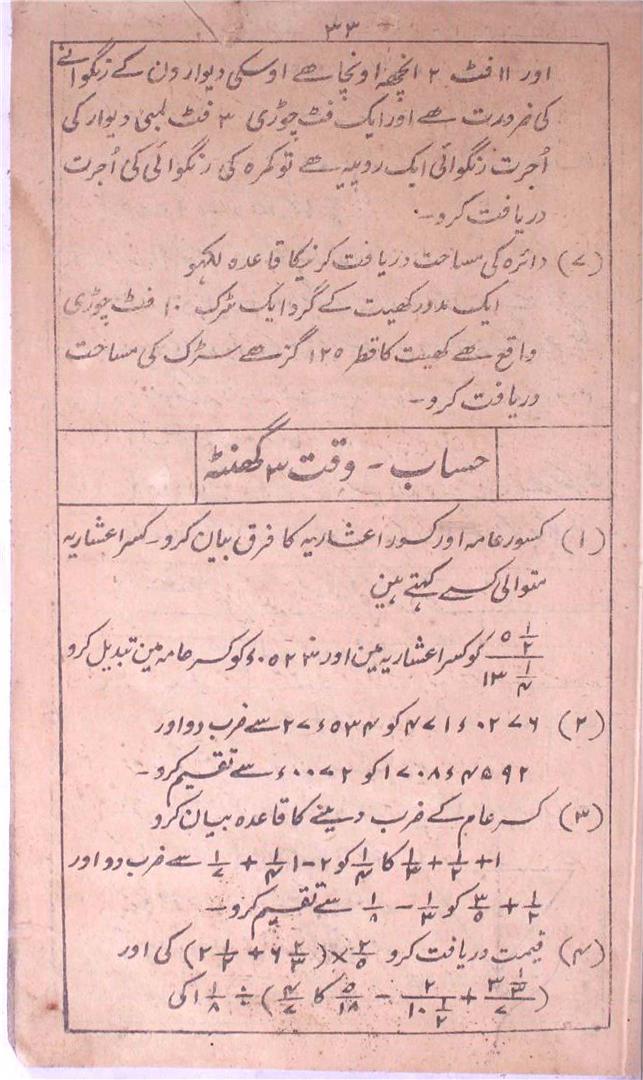 ۳۳
اور ۱۱ فٹ ۲ انچھہ اونچا ھے اوسکی دیوارون کے رنگوانے
کی ضرورت ھے اور ایک فٹ چوڑی ۳ فٹ لمبی دیوار کی
اُجرت رنگوائی ایک روپیہ ھے تو کمرہ کی رنگوائی کی اُجرت
دریافت کرو۔
(۷) دائرہ کی مساحت دریافت کرنیکا قاعدہ لکھو
ایک مدور کھیت کے گرد ایک سڑک ۱۰ فٹ چوڑی
واقع ھے کھیت کا قطر ۱۲۵ گز ھے سڑک کی مساحت
دریافت کرو۔
حساب - وقت ۳ گھنٹہ
(۱) کسور عامہ اور کسور اعشاریہ کا فرق بیان کرو۔ کسر اعشاریہ
متوالی کسے کہتے ہین
۵ ۱/۲ / ۱۳ ۱/۴ کو کسر اعشاریہ مین اور ۰۵۲۳ء کو کسر عامہ مین تبدیل کرو
(۲) ۴۷۱ء۰۲۷۶ کو ۲۷ء۵۳۴ سے ضرب دو اور
۱۷۰۸ء۴۵۹۲ کو ۰۰۷۲ء سے تقسیم کرو۔
(۳) کسر عام کے ضرب دینے کا قاعدہ بیان کرو
۱ + ۱/۲ + ۱/۳ کا ۱/۴ کو ۲ - ۱ ۱/۴ + ۱/۷ سے ضرب دو اور
۱/۲ + ۳/۵ کو ۱/۳ - ۱/۸ سے تقسیم کرو۔
(۴) قیمت دریافت کرو ۲/۵ × (۶ ۲/۳ + ۲ ۱/۲) کی اور
(۳ ۱/۳ / ۷ + ۲ / ۱۰ ۱/۲ - ۵/۱۸ کا ۴/۷) ÷ ۱ ۱/۸ کی